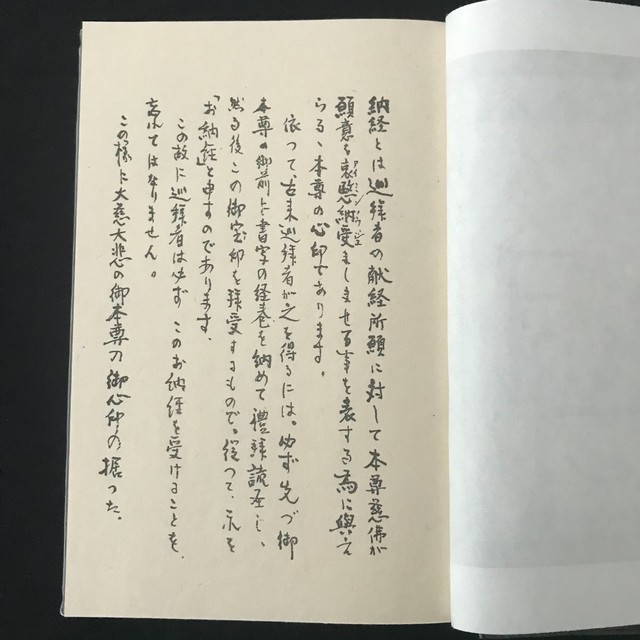 納経とは巡拝者の献経所願に対して本尊慈佛が
願意を哀愍納受ましませる事を表する為に與え
らるゝ本尊の心印であります。
依つて、古来巡拝者が之を得るには。必ず先づ御
本尊の御前に書写の経巻を納めて禮拝読誦し、
然る後この御宝印を拝受するもので。従つて、之を
「お納経」と申すのであります。
この故に巡拝者は必ずこのお納経を受けることを、
忘れてはなりません。
この様に大慈大悲の御本尊の御心印の据つた。